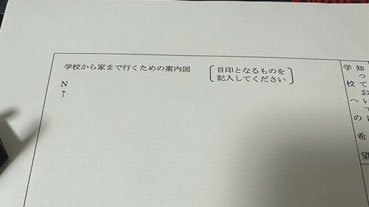 学校から家まで行くための案内図
目印となるものを
記入してください
N
↑
学校への希望
知っておいて